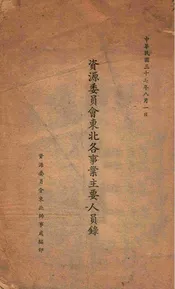 中華民國三十七年八月一日
資源委員會東北各事業主要人員錄
資源委員會東北辦事處編印